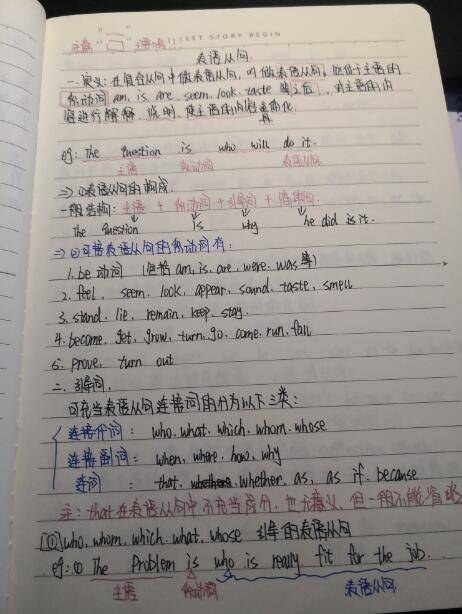 注意"三"连词!!! LET STORY BEGIN
表语从句.
一. 定义: 在复合句中做表语从句, 叫做表语从句, 位位于主语的
系动词 am, is, are, seem, look, taste 等之后, 对主语的内
容进行解释、说明, 使主语的内容具体化.
eg: The question is who will do it.
主语 系动词 表语从句
⇒ ①表语从句的构成.
一般结构: 主语 + 系动词 + 引导词 + 简单句.
The question is why he did is it.
⇒ ②可接表语从句的系动词有:
1. be 动词 (包括 am, is, are, were, was 等)
2. feel, seem, look, appear, sound, taste, smell
3. stand, lie, remain, keep, stay
4. become, get, grow, turn, go, come, run, fall
5. prove, turn out
二、引导词.
可充当表语从句连接词的分为以下三类:
连接代词: who, what, which, whom, whose
连接副词: when, where, how, why
连词: that, whether, as, as if, because
注: that 在表语从句中不充当成分, 也无意义, 但一般不能省略
[1] who, whom, which, what, whose 引导的表语从句
eg: ① The problem is who is really fit for the job.
主语 系动词 表语从句